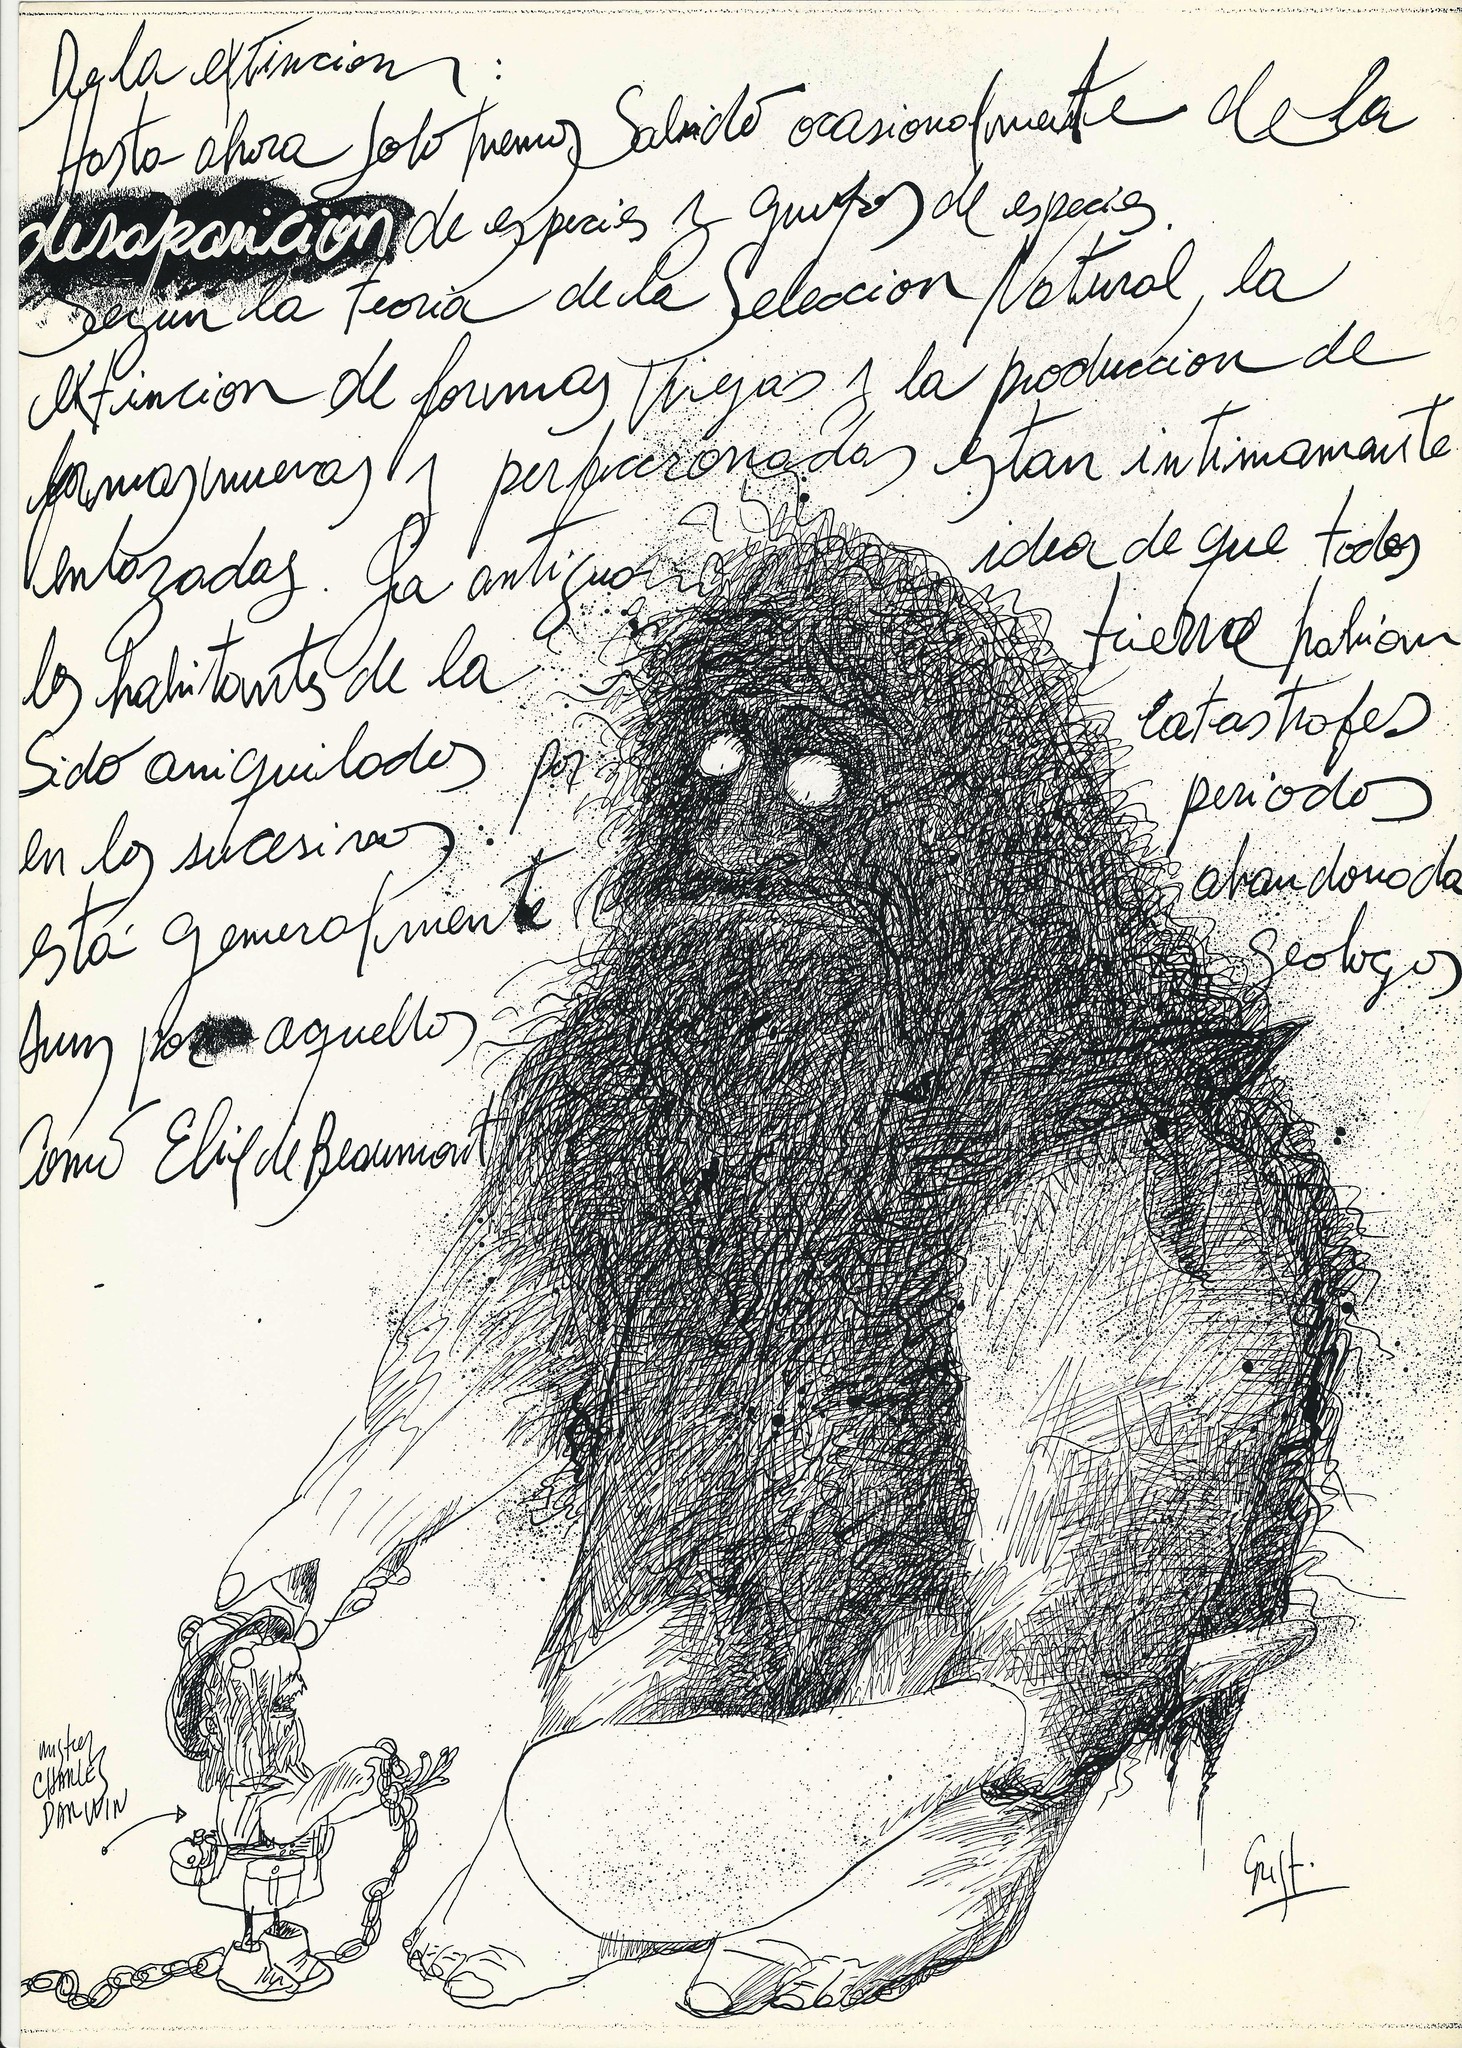 De la extincion :
Hasta ahora solo hemos Salido ocasionalmente de la
desaparicion de especies y grupos de especies.
Según la teoria de la Seleccion Natural, la
extincion de formas viejas y la produccion de
formas nuevas y perfeccionadas estan intimamante
enlazadas. La antigua idea de que todos
los habitantes de la tierra habian
sido aniquilados por catastrofes
en los sucesivos periodos
está generalmente abandonada
Aun por aquellos geologos
Como Elie de Beaumont
mister
CHARLES
DARWIN
Crist.